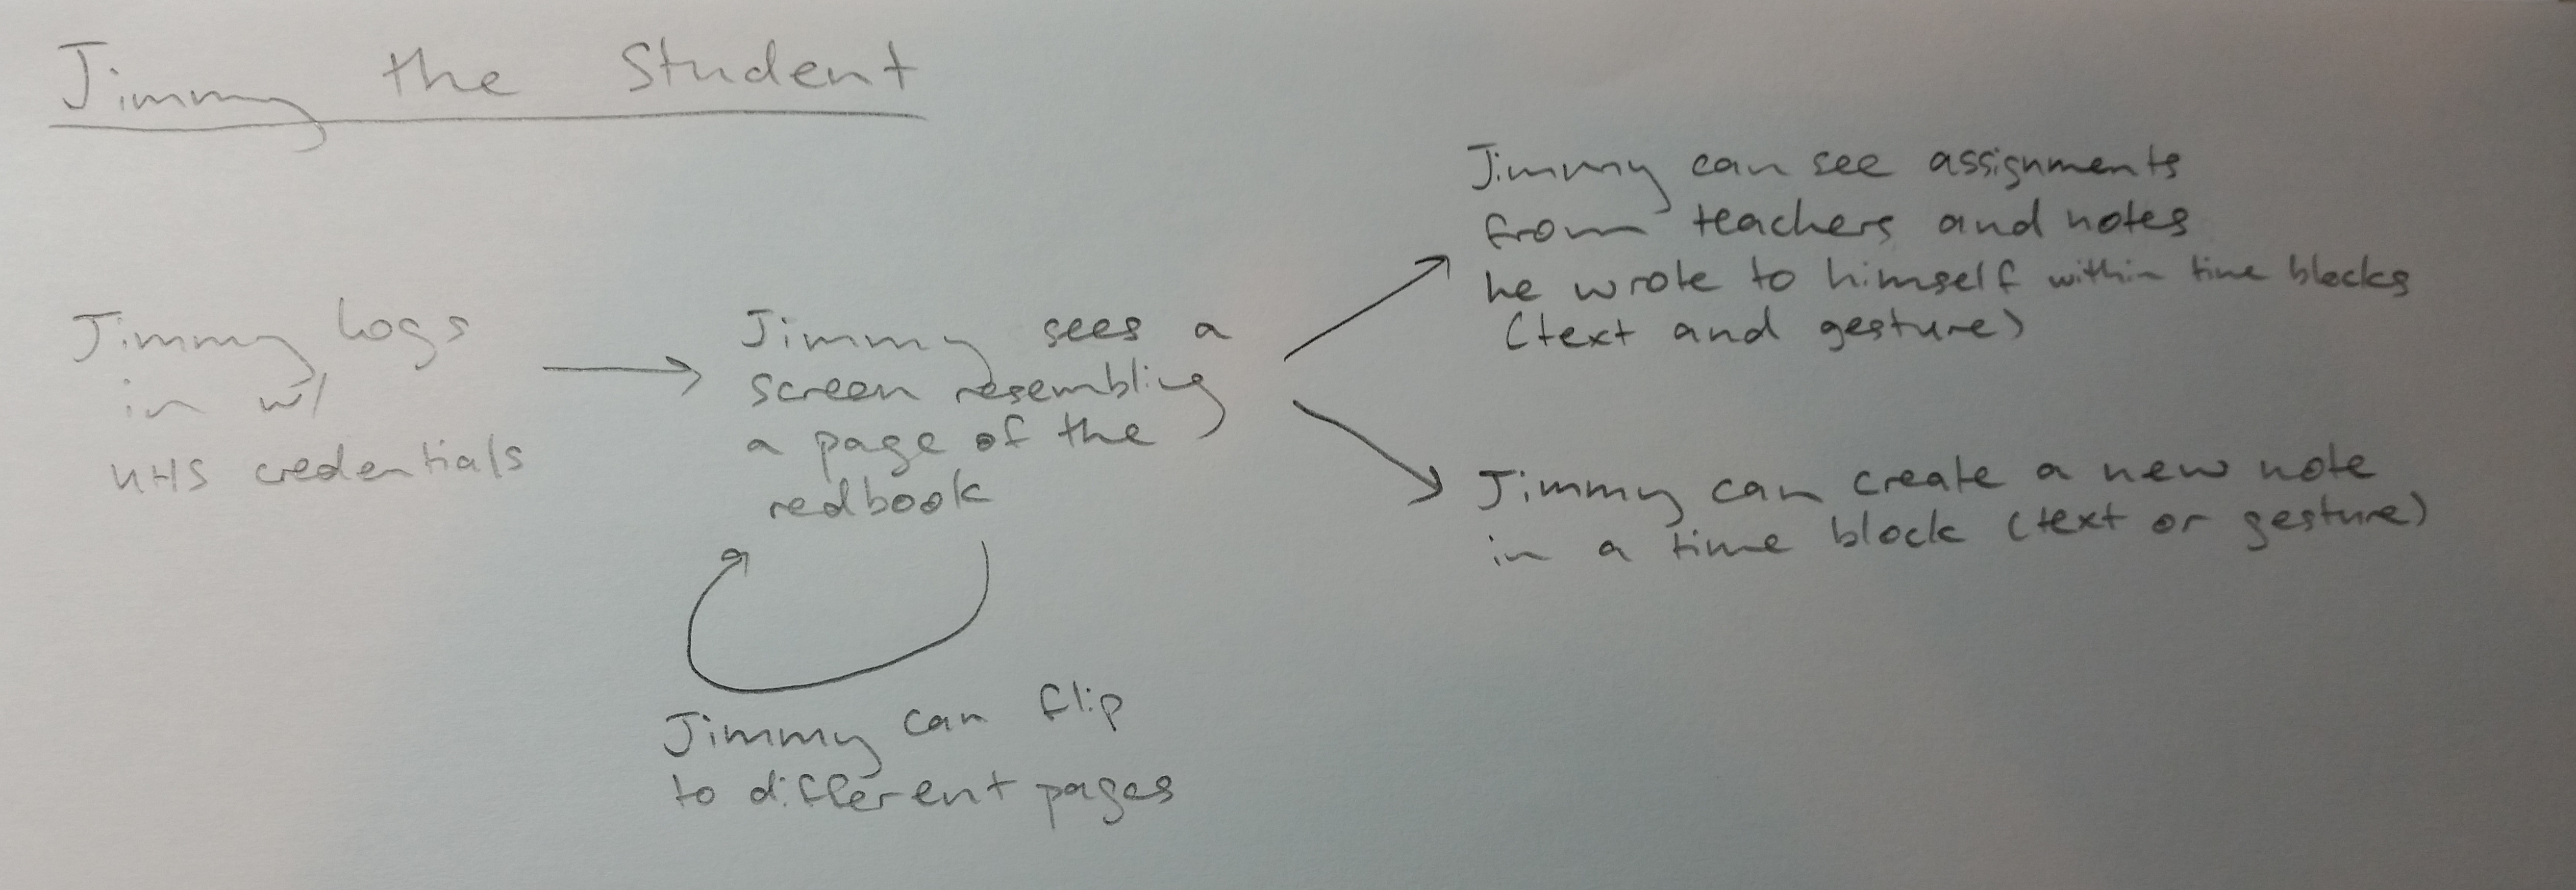 Jimmy the Student
Jimmy logs
in w/
UHS credentials
Jimmy sees a
screen resembling
a page of the
redbook
Jimmy can flip
to different pages
Jimmy can see assignments
from teachers and notes
he wrote to himself within time blocks
(text and gesture)
Jimmy can create a new note
in a time block (text or gesture)